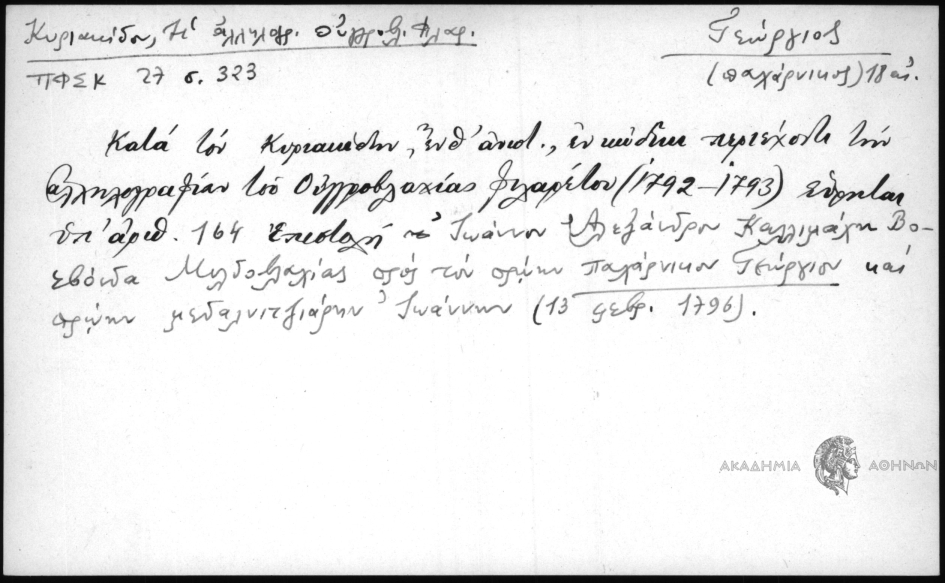 Κυριακίδου, Ἡ ἀλληλογρ. Οὑγγροβλ. Φιλαρ.
ΠΦΣΚ 27 σ. 323
Γεώργιος
(παχάρνικος) 18 αἰ.
Κατά τόν Κυριακίδην, ἔνθ' ἀνωτ., ἐν κώδικι περιέχοντι τήν
ἀλληλογραφίαν τοῦ Οὑγγροβλαχίας Φιλαρέτου (1792-1793) εὕρηται
ὑπ' ἀριθ. 164 Ἐπιστολή Ἰωάννου Ἀλεξάνδρου Καλλιμάχη Βο-
εβόδα Μολδοβλαχίας πρός τόν πρώην παχάρνικον Γεώργιον καί
πρώην μεδελνιτζιάρην Ἰωάννην (13 φεβρ. 1796).
ΑΚΑΔΗΜΙΑ ΑΘΗΝΩΝ